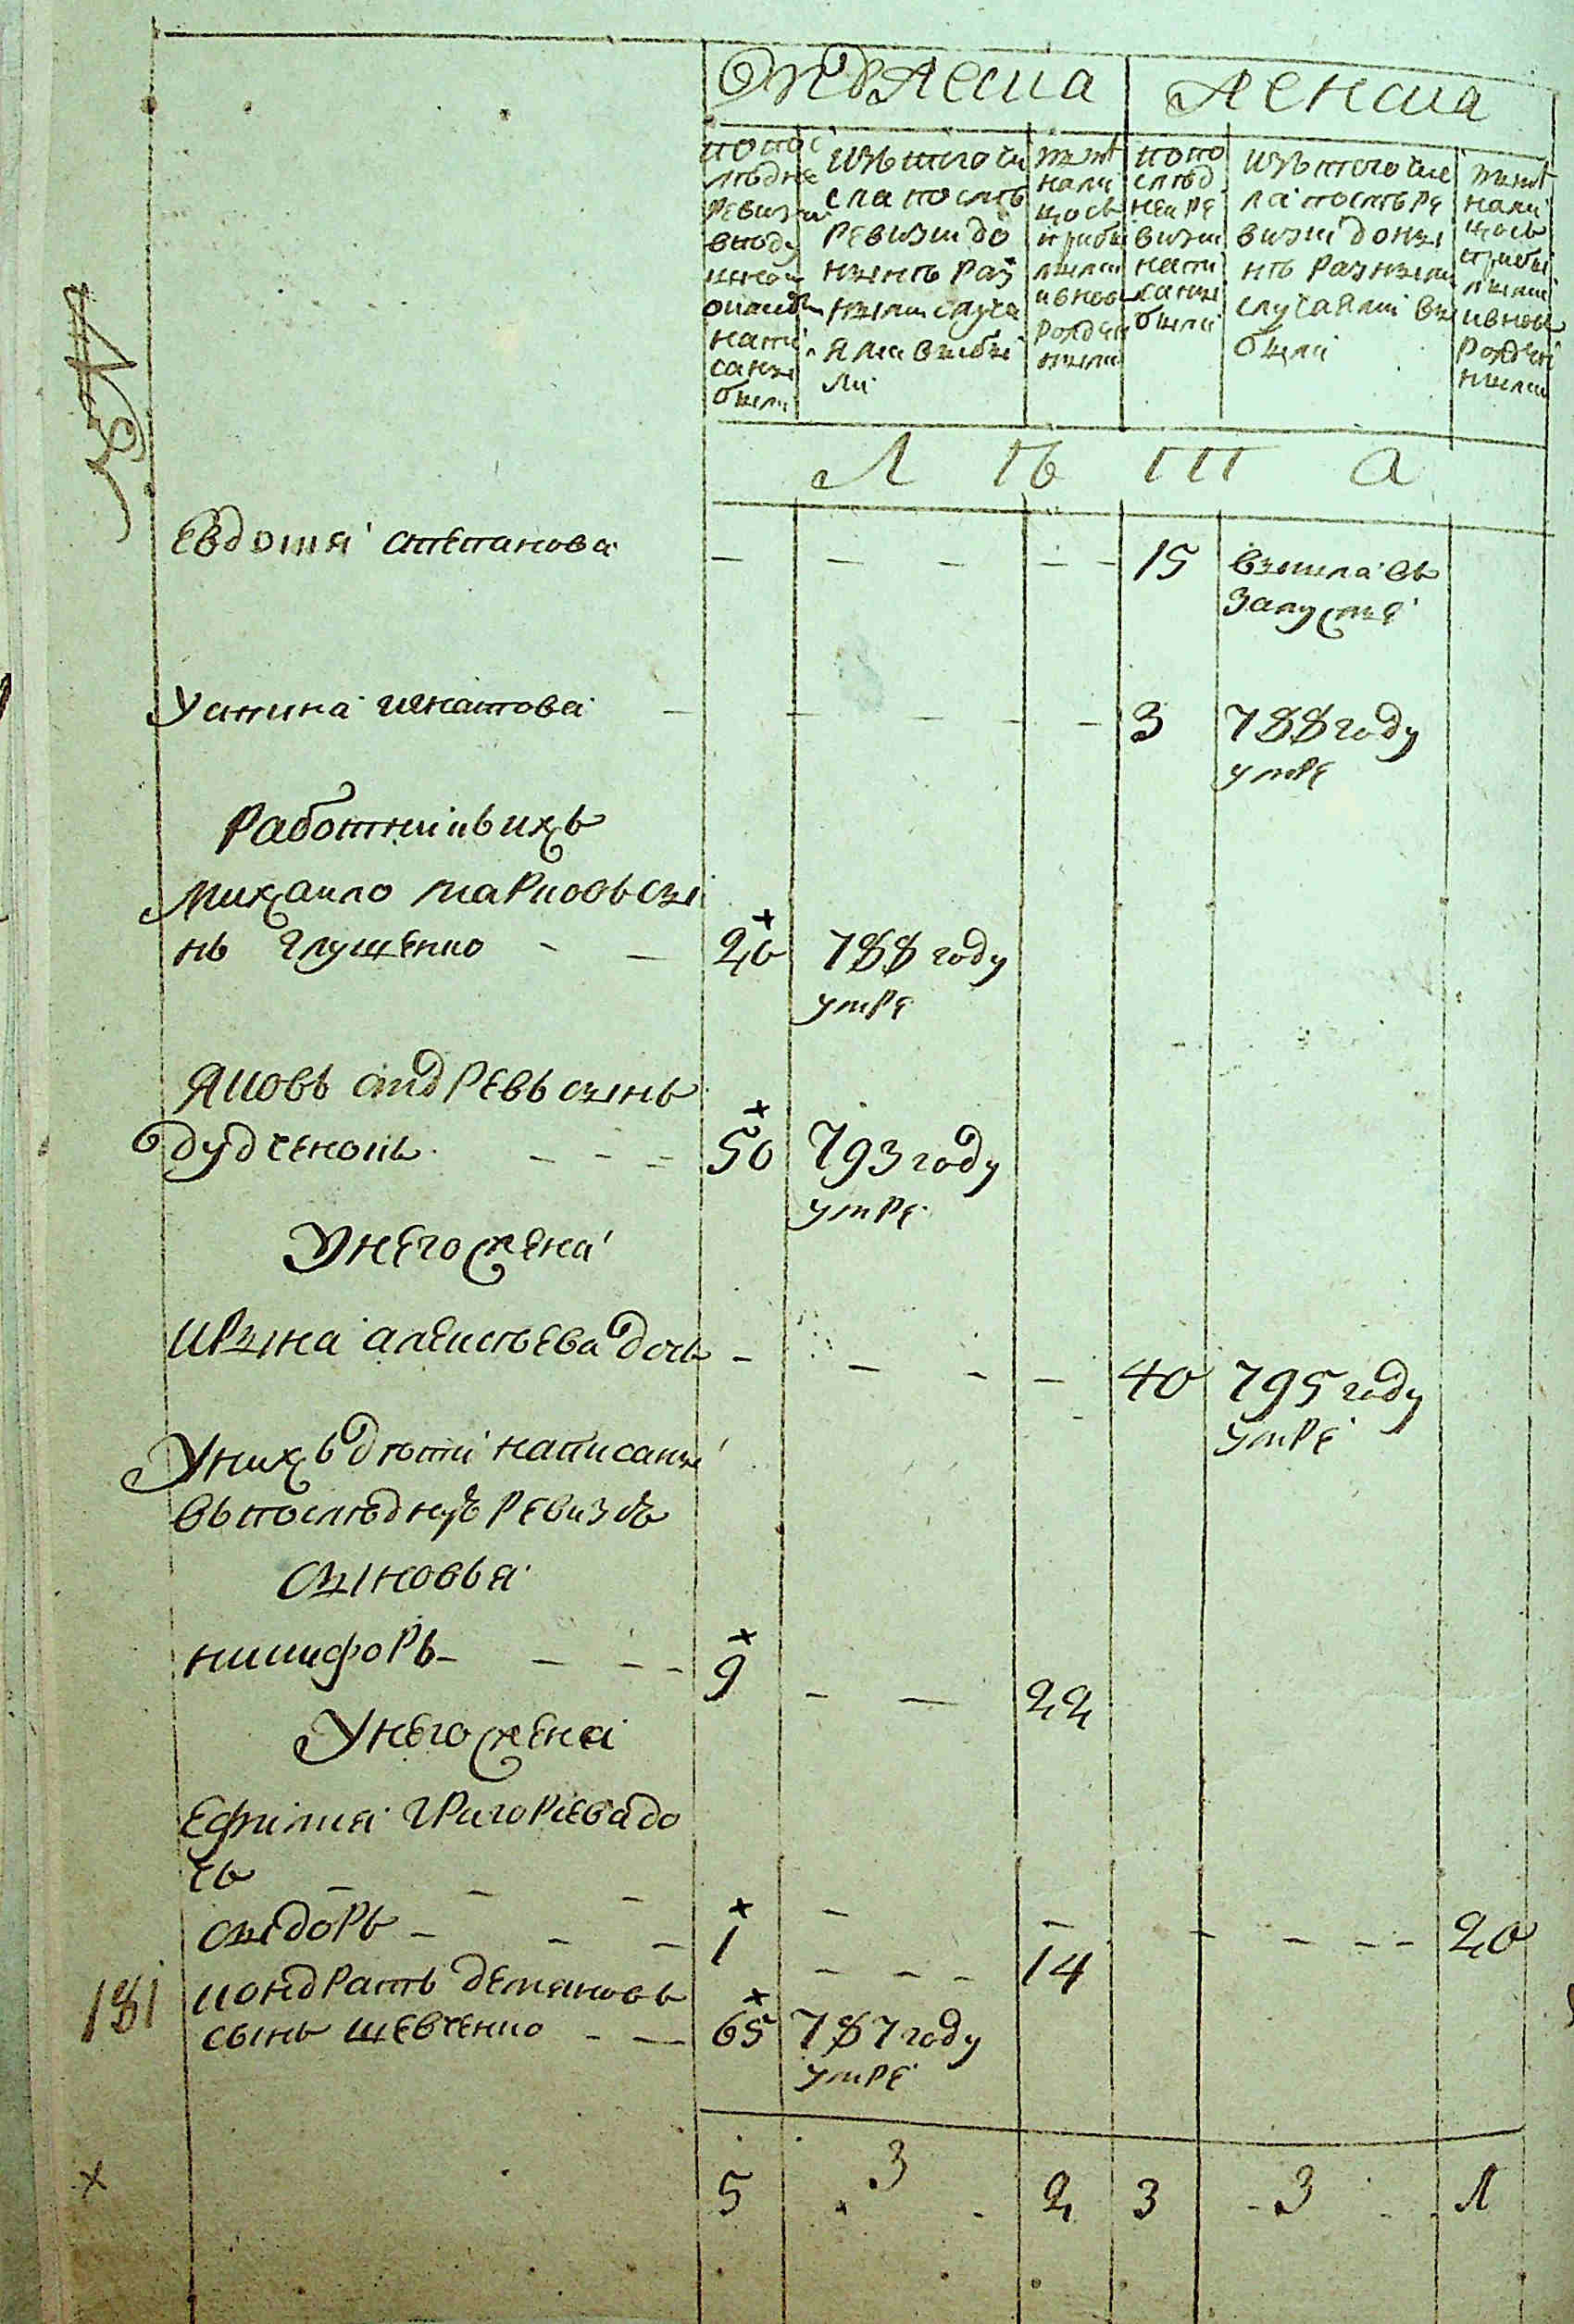 Мужеска
Женска
по пос
лѣдне
ревизи
в подуш
ной
оклад
напи
саны
были
изъ того чи
сла послѣ
ревизии до
нынѣ раз
ными случа
ями выбы
ли
нынѣ
нали
цось
прибы
лыми
и вново
рожден
ными
по по
слѣд
ней ре
визии
напи
саны
были
изъ того чис
ла послѣ ре
визии доны
нѣ разными
случаями вы
были
нынѣ
нали
цось
прибы
лыми
и вново
рожден
ными
Л ѣ т а
Евдокия степанова
15
вышла въ
замуство
Устина игнатова
3
788 году
умре
Работник ихъ
Михаило марковъ сы
нъ глущенко
20
788 году
умре
Яковъ андревъ сынъ
дудченокъ
50
793 году
умре
У него жена
Ирына алексѣева дочь
40
795 году
умре
У нихъ дѣти написаны
въ последную ревизию
сыновья
никифоръ
9
22
У него жена
Ефимия григориева до
чь
20
сыдоръ
1
14
181
кондратъ демяновъ
сынъ шевченко
65
787 году
умре
5 3 2 3 3 1